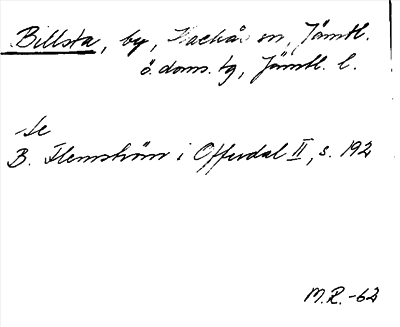 Billsta, by, Hackås sn, Jämtl.
ö. doms. tg, Jämtl. l.
Se
B. Flemström i Offerdal II, s. 192
M.R.-62